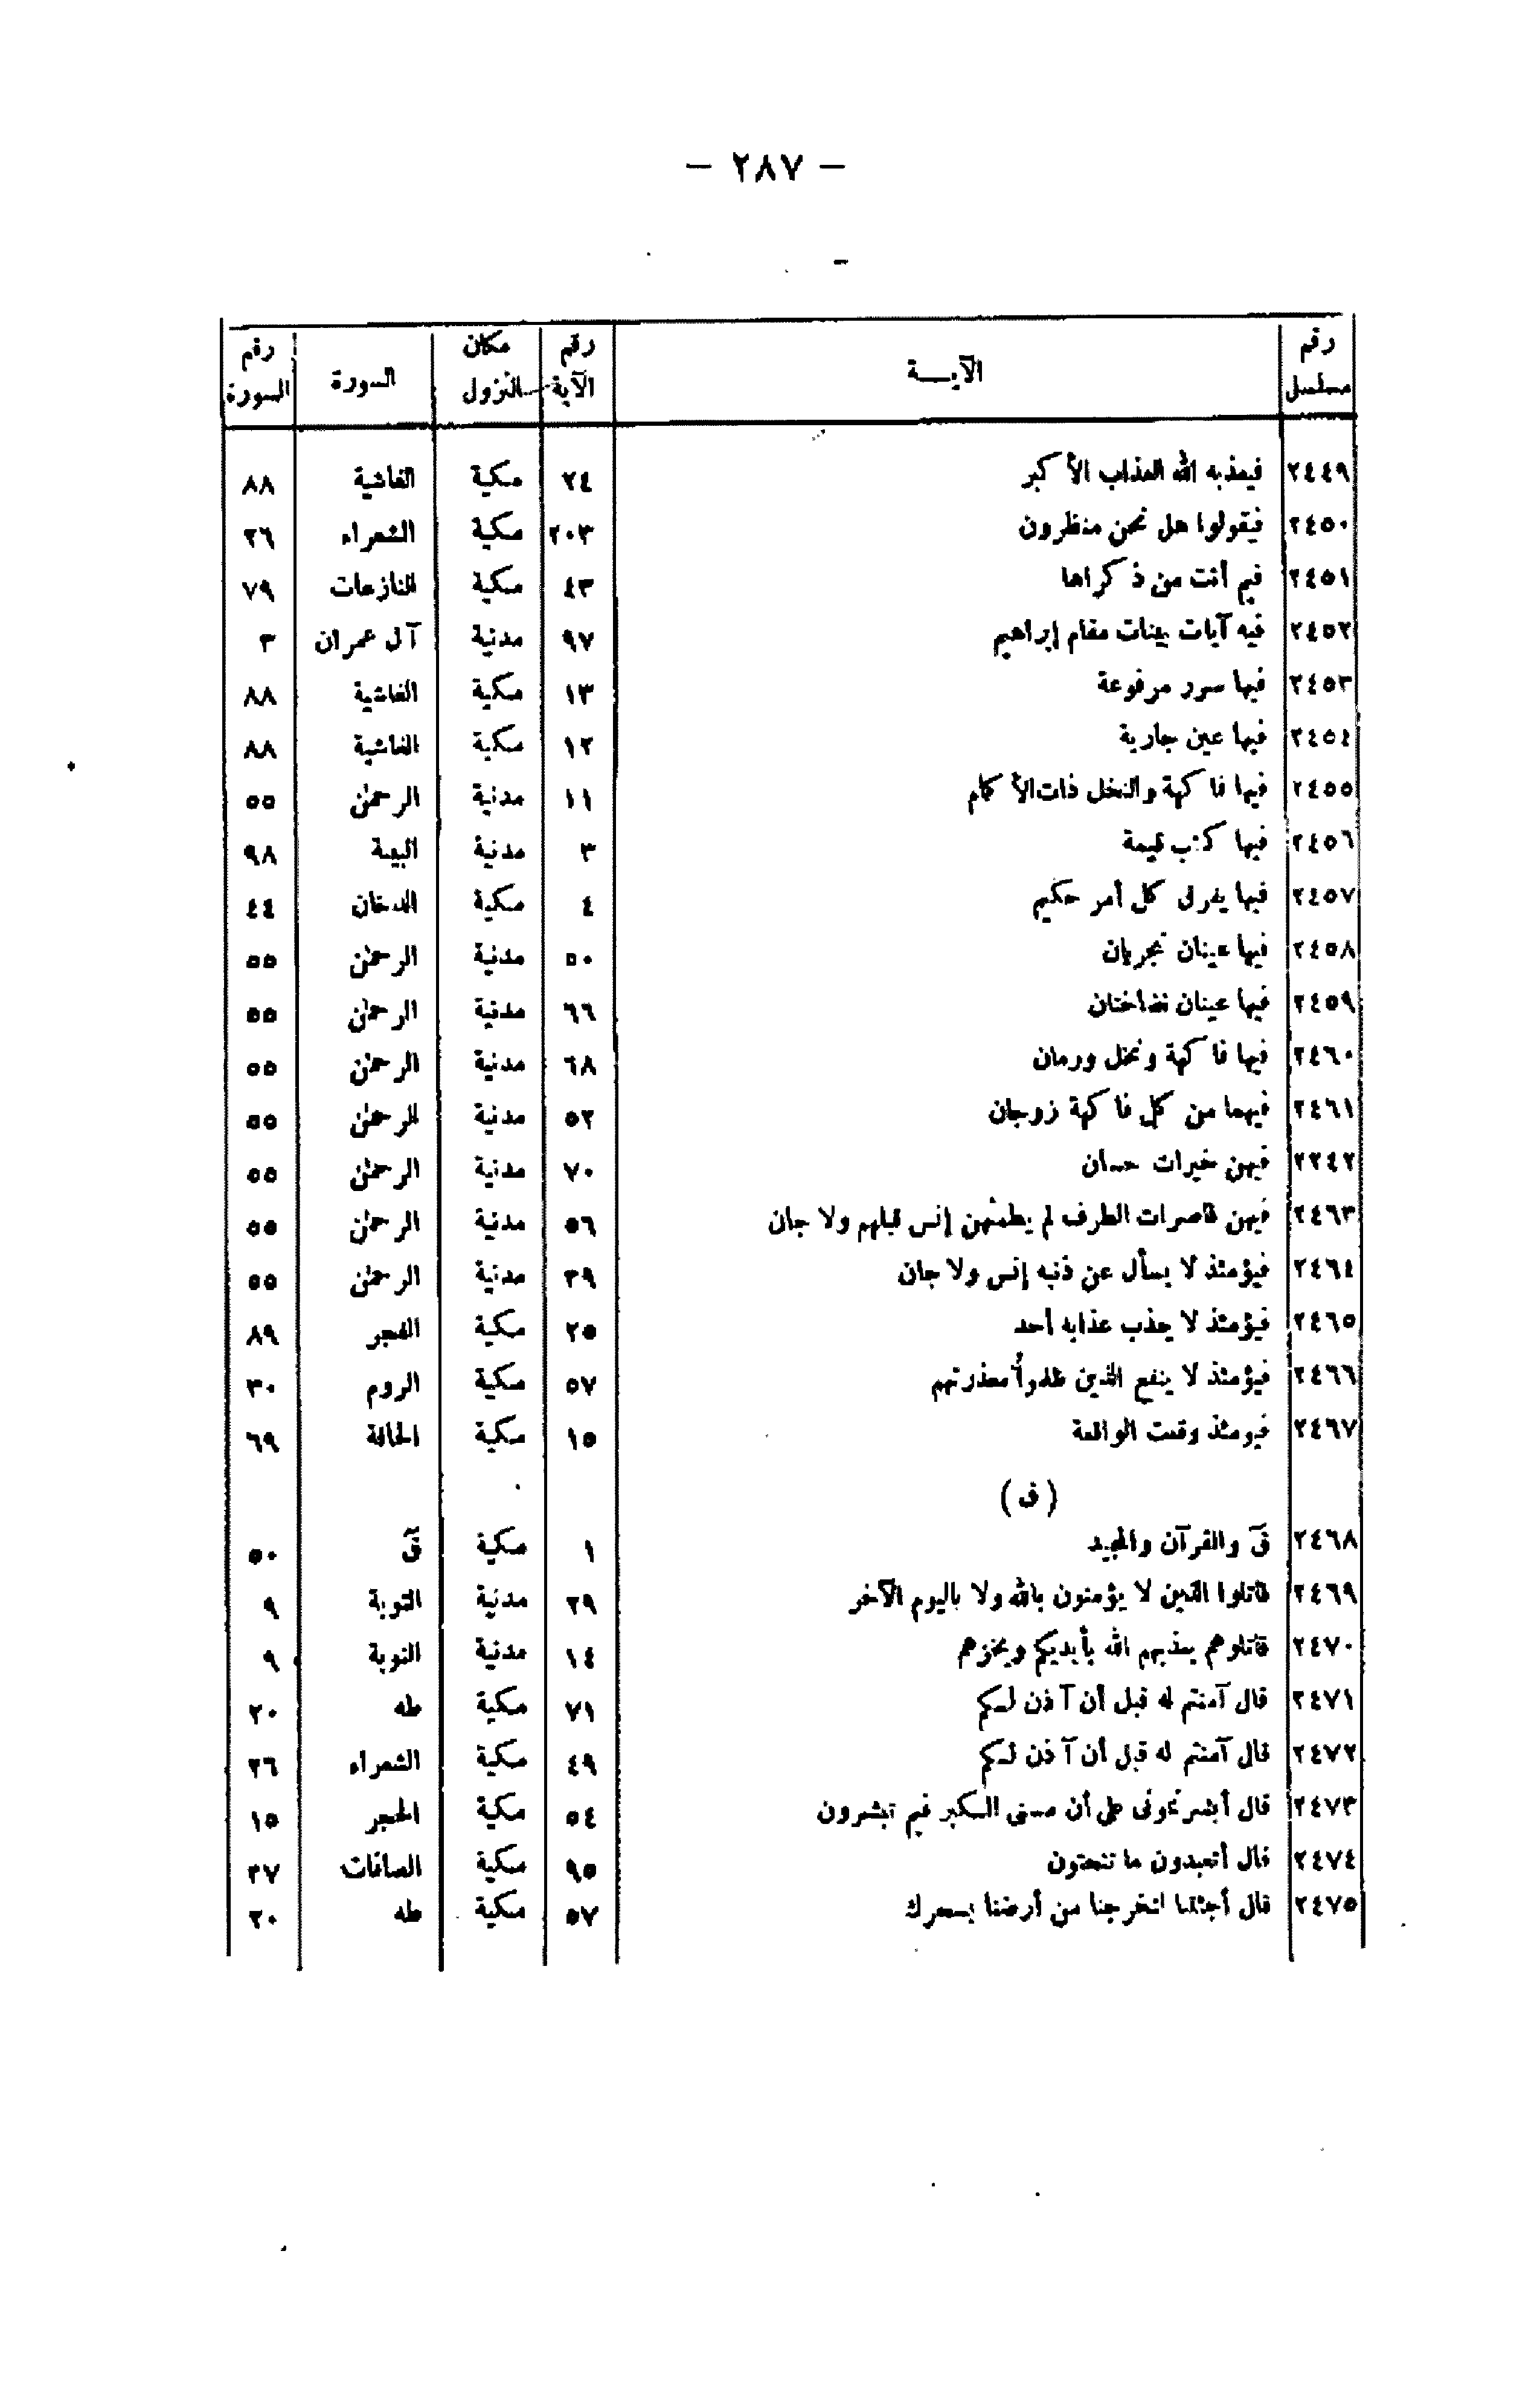 — ٢٨٧ —
رقم مسلسل | الآيـــة | رقم الآية | مكان النزول | السورة | رقم السورة
٢٤٤٩ | فيعذبه الله العذاب الأكبر | ٢٤ | مكية | الغاشية | ٨٨
٢٤٥٠ | فيقولوا هل نحن منظرون | ٢٠٣ | مكية | الشعراء | ٢٦
٢٤٥١ | فيم أنت من ذكراها | ٤٣ | مكية | النازعات | ٧٩
٢٤٥٢ | فيه آيات بينات مقام إبراهيم | ٩٧ | مدنية | آل عمران | ٣
٢٤٥٣ | فيها سرر مرفوعة | ١٣ | مكية | الغاشية | ٨٨
٢٤٥٤ | فيها عين جارية | ١٢ | مكية | الغاشية | ٨٨
٢٤٥٥ | فيها فاكهة والنخل ذات الأكمام | ١١ | مدنية | الرحمن | ٥٥
٢٤٥٦ | فيها كتب قيمة | ٣ | مدنية | البينة | ٩٨
٢٤٥٧ | فيها يفرق كل أمر حكيم | ٤ | مكية | الدخان | ٤٤
٢٤٥٨ | فيها عينان تجريان | ٥٠ | مدنية | الرحمن | ٥٥
٢٤٥٩ | فيها عينان نضاختان | ٦٦ | مدنية | الرحمن | ٥٥
٢٤٦٠ | فيها فاكهة ونخل ورمان | ٦٨ | مدنية | الرحمن | ٥٥
٢٤٦١ | فيهما من كل فاكهة زوجان | ٥٢ | مدنية | الرحمن | ٥٥
٢٢٤٢ | فيهن خيرات حسان | ٧٠ | مدنية | الرحمن | ٥٥
٢٤٦٣ | فيهن قاصرات الطرف لم يطمثهن إنس قبلهم ولا جان | ٥٦ | مدنية | الرحمن | ٥٥
٢٤٦٤ | فيؤمئذ لا يسأل عن ذنبه إنس ولا جان | ٣٩ | مدنية | الرحمن | ٥٥
٢٤٦٥ | فيؤمئذ لا يعذب عذابه أحد | ٢٥ | مكية | الفجر | ٨٩
٢٤٦٦ | فيؤمئذ لا ينفع الذين ظلموا معذرتهم | ٥٧ | مكية | الروم | ٣٠
٢٤٦٧ | فيومئذ وقعت الواقعة | ١٥ | مكية | الحاقة | ٦٩
(ق)
٢٤٦٨ | قٓ والقرآن والمجيد | ١ | مكية | قٓ | ٥٠
٢٤٦٩ | قاتلوا الذين لا يؤمنون بالله ولا باليوم الآخر | ٢٩ | مدنية | التوبة | ٩
٢٤٧٠ | قاتلوهم يعذبهم الله بأيديكم ويخزهم | ١٤ | مدنية | التوبة | ٩
٢٤٧١ | قال آمنتم له قبل أن آذن لكم | ٧١ | مكية | طه | ٢٠
٢٤٧٢ | قال آمنتم له قبل أن آذن لكم | ٤٩ | مكية | الشعراء | ٢٦
٢٤٧٣ | قال أبشرتمونى على أن مسنى الكبر فيم تبشرون | ٥٤ | مكية | الحجر | ١٥
٢٤٧٤ | قال أتعبدون ما تنحتون | ٩٥ | مكية | الصافات | ٣٧
٢٤٧٥ | قال أجئتنا لتخرجنا من أرضنا بسحرك | ٥٧ | مكية | طه | ٢٠